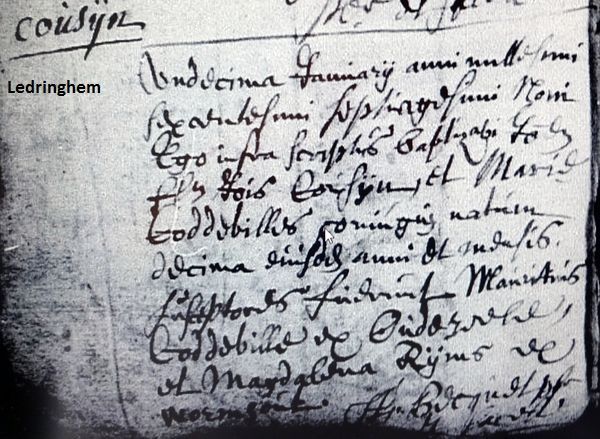 cousijn
Ledringhem
Undecima January anni millesimi
sexcentesimi septuagesimi Noni
Ego infra scriptus baptizavi
Cousyn et Mariæ
Coddevilles coniugu natum
decima eiusdē anni et mensis.
susceptores fuerunt Mauritius
Coddeville ex Oudezeele
et Magdalena Ryms ex
wormhout.